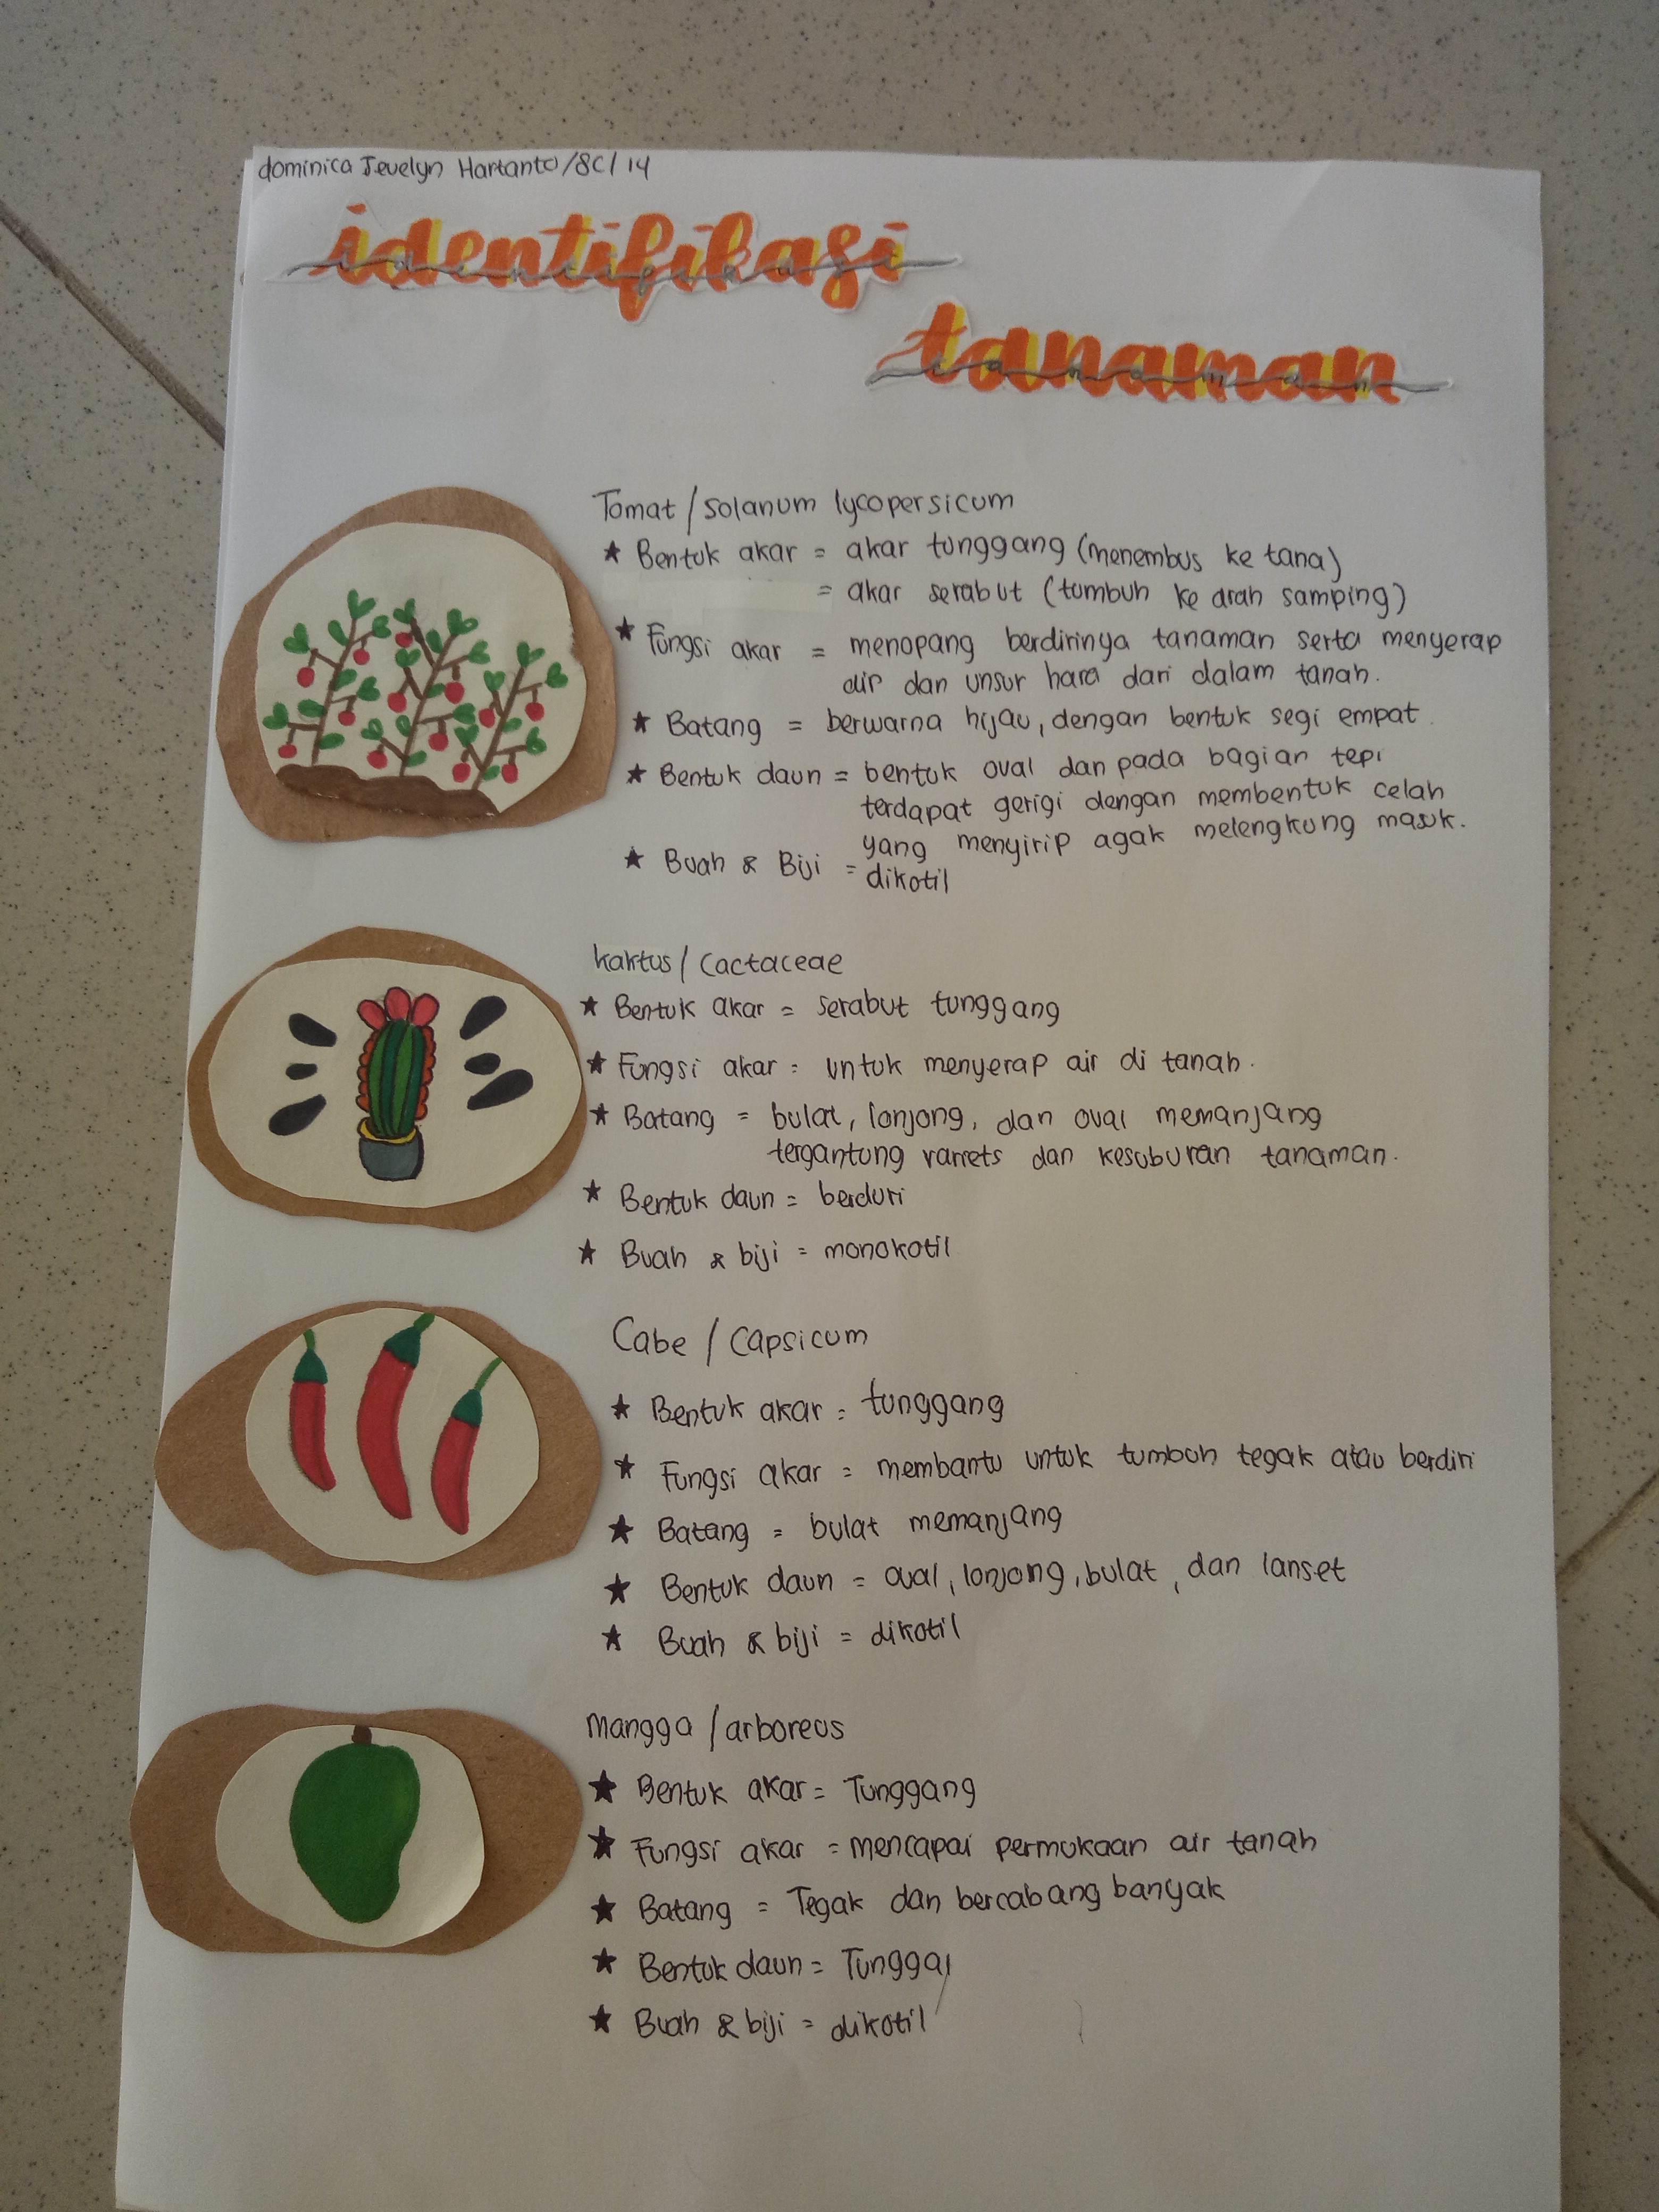 dominica Jevelyn Hartanto/8C/14
identifikasi
identifikasi
tanaman
tanaman
Tomat / solanum lycopersicum
★ Bentuk akar = akar tunggang (menembus ke tana)
= akar serabut (tumbuh ke arah samping)
★ Fungsi akar = menopang berdirinya tanaman serta menyerap
air dan unsur hara dari dalam tanah.
★ Batang = berwarna hijau, dengan bentuk segi empat.
★ Bentuk daun = bentuk oval dan pada bagian tepi
terdapat gerigi dengan membentuk celah
yang menyirip agak melengkung masuk.
★ Buah & Biji = dikotil
kaktus / Cactaceae
★ Bentuk akar = serabut tunggang
★ Fungsi akar = untuk menyerap air di tanah.
★ Batang = bulat, lonjong, dan oval memanjang
tergantung dan kesuburan tanaman.
★ Bentuk daun = berduri
★ Buah & biji = monokotil
Cabe / Capsicum
★ Bentuk akar = tunggang
★ Fungsi akar = membantu untuk tumbuh tegak atau berdiri
★ Batang = bulat memanjang
★ Bentuk daun = oval, lonjong, bulat, dan lanset
★ Buah & biji = dikotil
Mangga / arboreus
★ Bentuk akar = Tunggang
★ Fungsi akar = mencapai permukaan air tanah
★ Batang = Tegak dan bercabang banyak
★ Bentuk daun = Tunggal
★ Buah & biji = dikotil